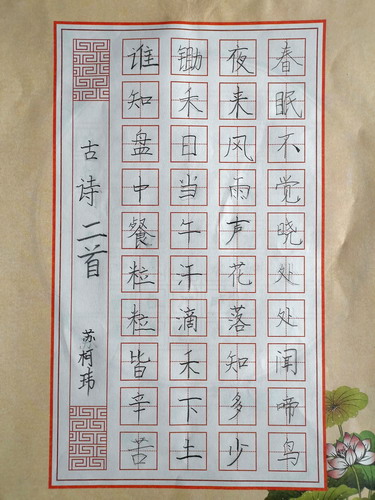 春眠不觉晓处处闻啼鸟
夜来风雨声花落知多少
锄禾日当午汗滴禾下土
谁知盘中餐粒粒皆辛苦
古诗二首
苏柯玮